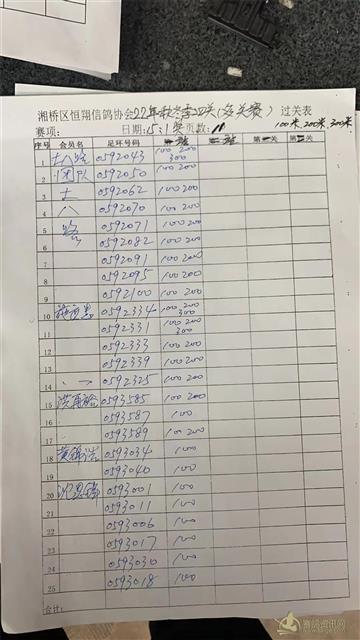 湘桥区恒翔信鸽协会22年秋冬季四关(多关赛)过关表
赛项: 日期: 15:1奖 页数: 100米,200米,300米
序号 会员名 足环号码 第 关 第 关
1 十八路 0592043 100 200 300
2 团队 0592050 100 200
3 十 0592062 100 200
4 八 0592070 100 200
5 路 0592071 100 200
6 0592082 100 200
7 0592091 100 200
8 0592095 100 200
9 0592100 100 200
10 0592334 100 200 300
11 0592331 100 200 300
12 0592333 100 200
13 0592339 100 200
14 0592325 100 200
15 0593585 100 200
16 0593587 100
17 0593589 100 200
18 黄锦浩 0593034 100
19 0593040 100
20 0593001 100
21 0593011 100
22 0593006 100
23 0593017 100
24 0593030 100
25 0593018 100
合计:
赛鸽资讯网